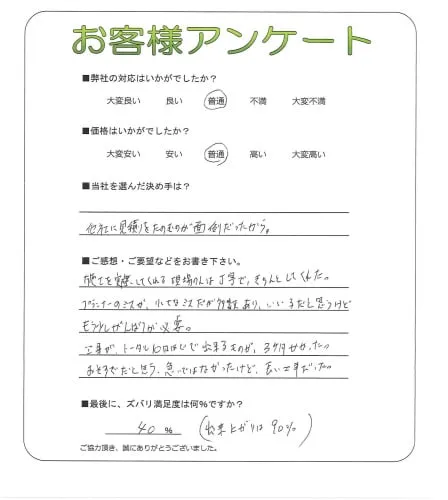 お客様アンケート
■弊社の対応はいかがでしたか？
大変良い 良い 普通 不満 大変不満
■価格はいかがでしたか？
大変安い 安い 普通 高い 大変高い
■当社を選んだ決め手は？
他社に見積りをたのむのが面倒だったから。
■ご感想・ご要望などをお書き下さい。
施工を実際してくれる現場の人は丁寧で、きちんとしてくれた。
プランナーのミスが、小さなミスだが多数あり、いい人だと思うけど
もう少しがんばりが必要。
工事が、トータル10日ほどで出来るものが、3ヶ月かかった。
おそすぎだと思う、急いではなかったけど、長い工事だった。
■最後に、ズバリ満足度は何%ですか？
40 % (出来上がりは90%)
ご協力頂き、誠にありがとうございました。